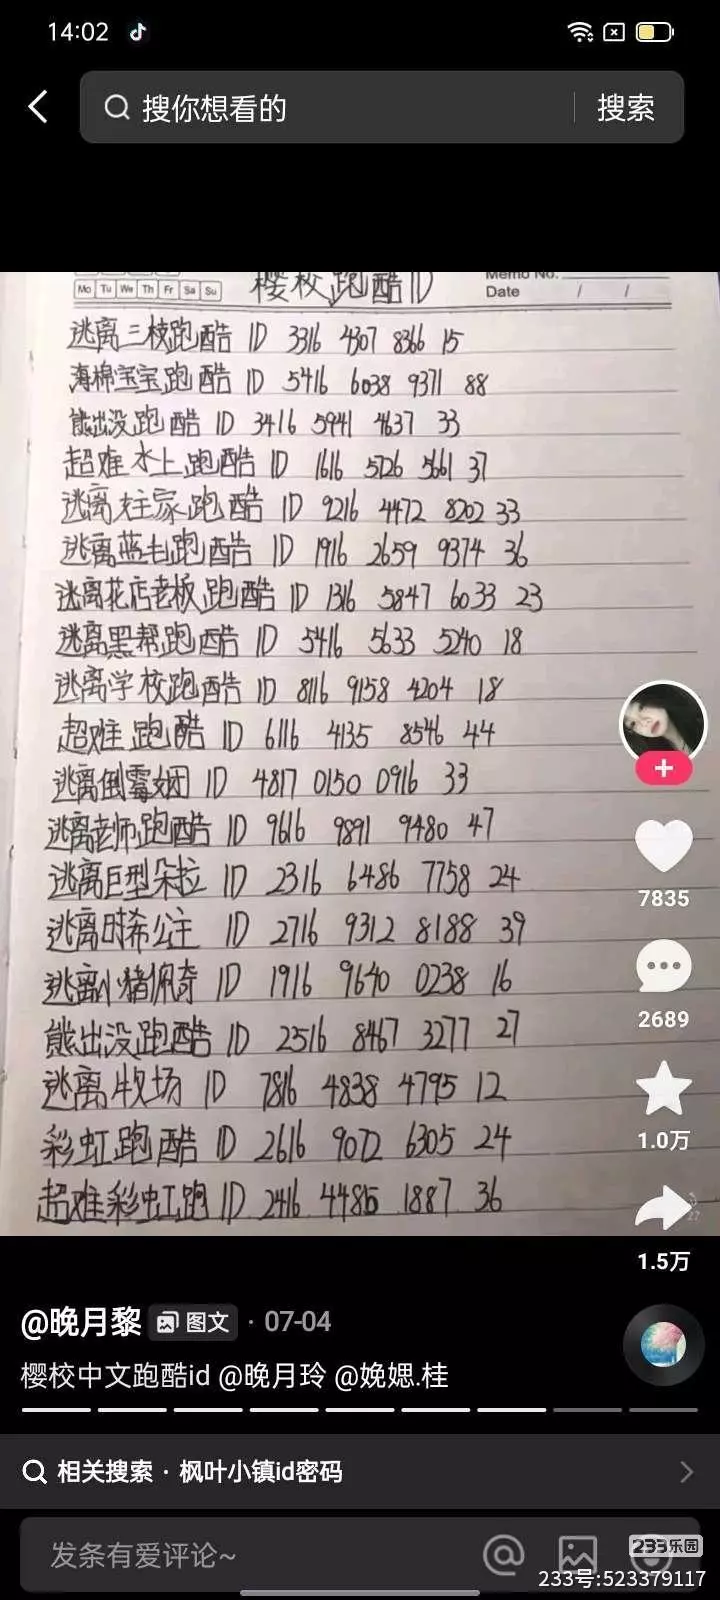 14:02
搜你想看的 搜索
Mo Tu We Th Fr Sa Su 樱校跑酷ID Memo No.
Date / /
逃离三枝跑酷 ID 3316 4307 8366 15
海棉宝宝跑酷 ID 5416 6038 9371 88
熊出没跑酷 ID 3416 5941 4637 33
超难水上跑酷 ID 1616 5726 5661 37
逃离柱家跑酷 ID 9216 4472 8202 33
逃离蓝毛跑酷 ID 1916 2659 9374 36
逃离花店老板跑酷 ID 1316 5847 6033 23
逃离黑帮跑酷 ID 5416 5633 5240 18
逃离学校跑酷 ID 8116 9158 4204 18
超难跑酷 ID 6116 4135 8546 44
逃离倒霉 ID 4817 0150 0916 33
逃离老师跑酷 ID 9616 9891 9480 47
逃离巨型朵拉 ID 2316 6486 7758 24
逃离时希公主 ID 2716 9312 8188 39
逃离小猪佩奇 ID 1916 9640 0238 16
熊出没跑酷 ID 2516 8467 3277 27
逃离牧场 ID 7816 4838 4795 12
彩虹跑酷 ID 2616 9072 6305 24
超难彩虹跑 ID 2416 4485 1887 36
7835
2689
1.0万
1.5万
@晚月黎 图文 · 07-04
樱校中文跑酷id @晚月玲 @娩媤.桂
相关搜索 · 枫叶小镇id密码
发条有爱评论~
233乐园
233号:523379117